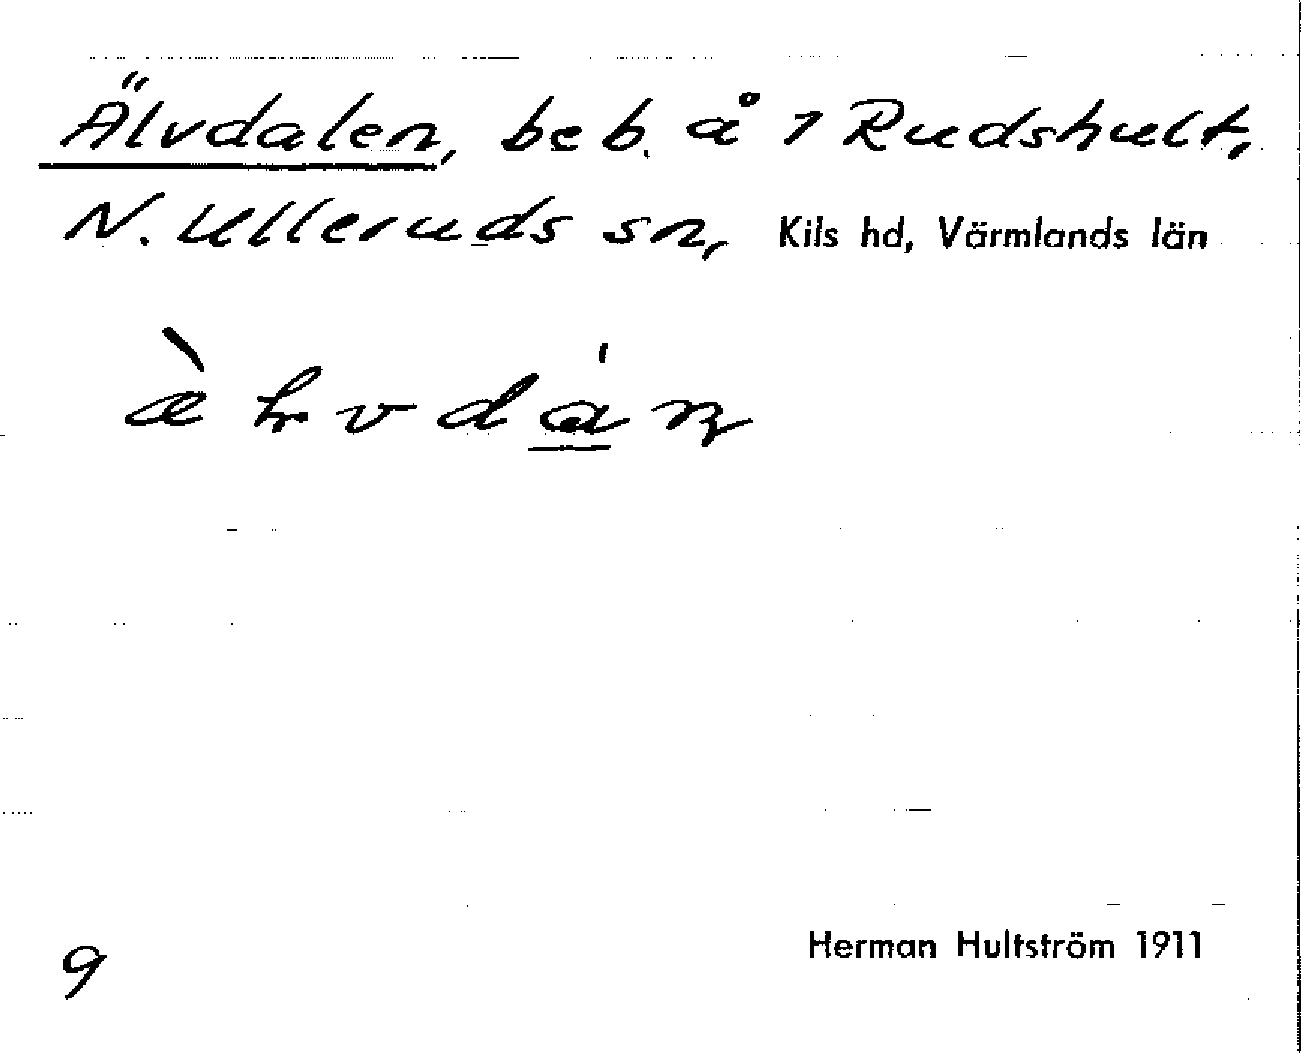 Älvdalen, beb. å 1 Rudshult,
N. Ulleruds sn, Kils hd, Värmlands län
9
Herman Hultström 1911